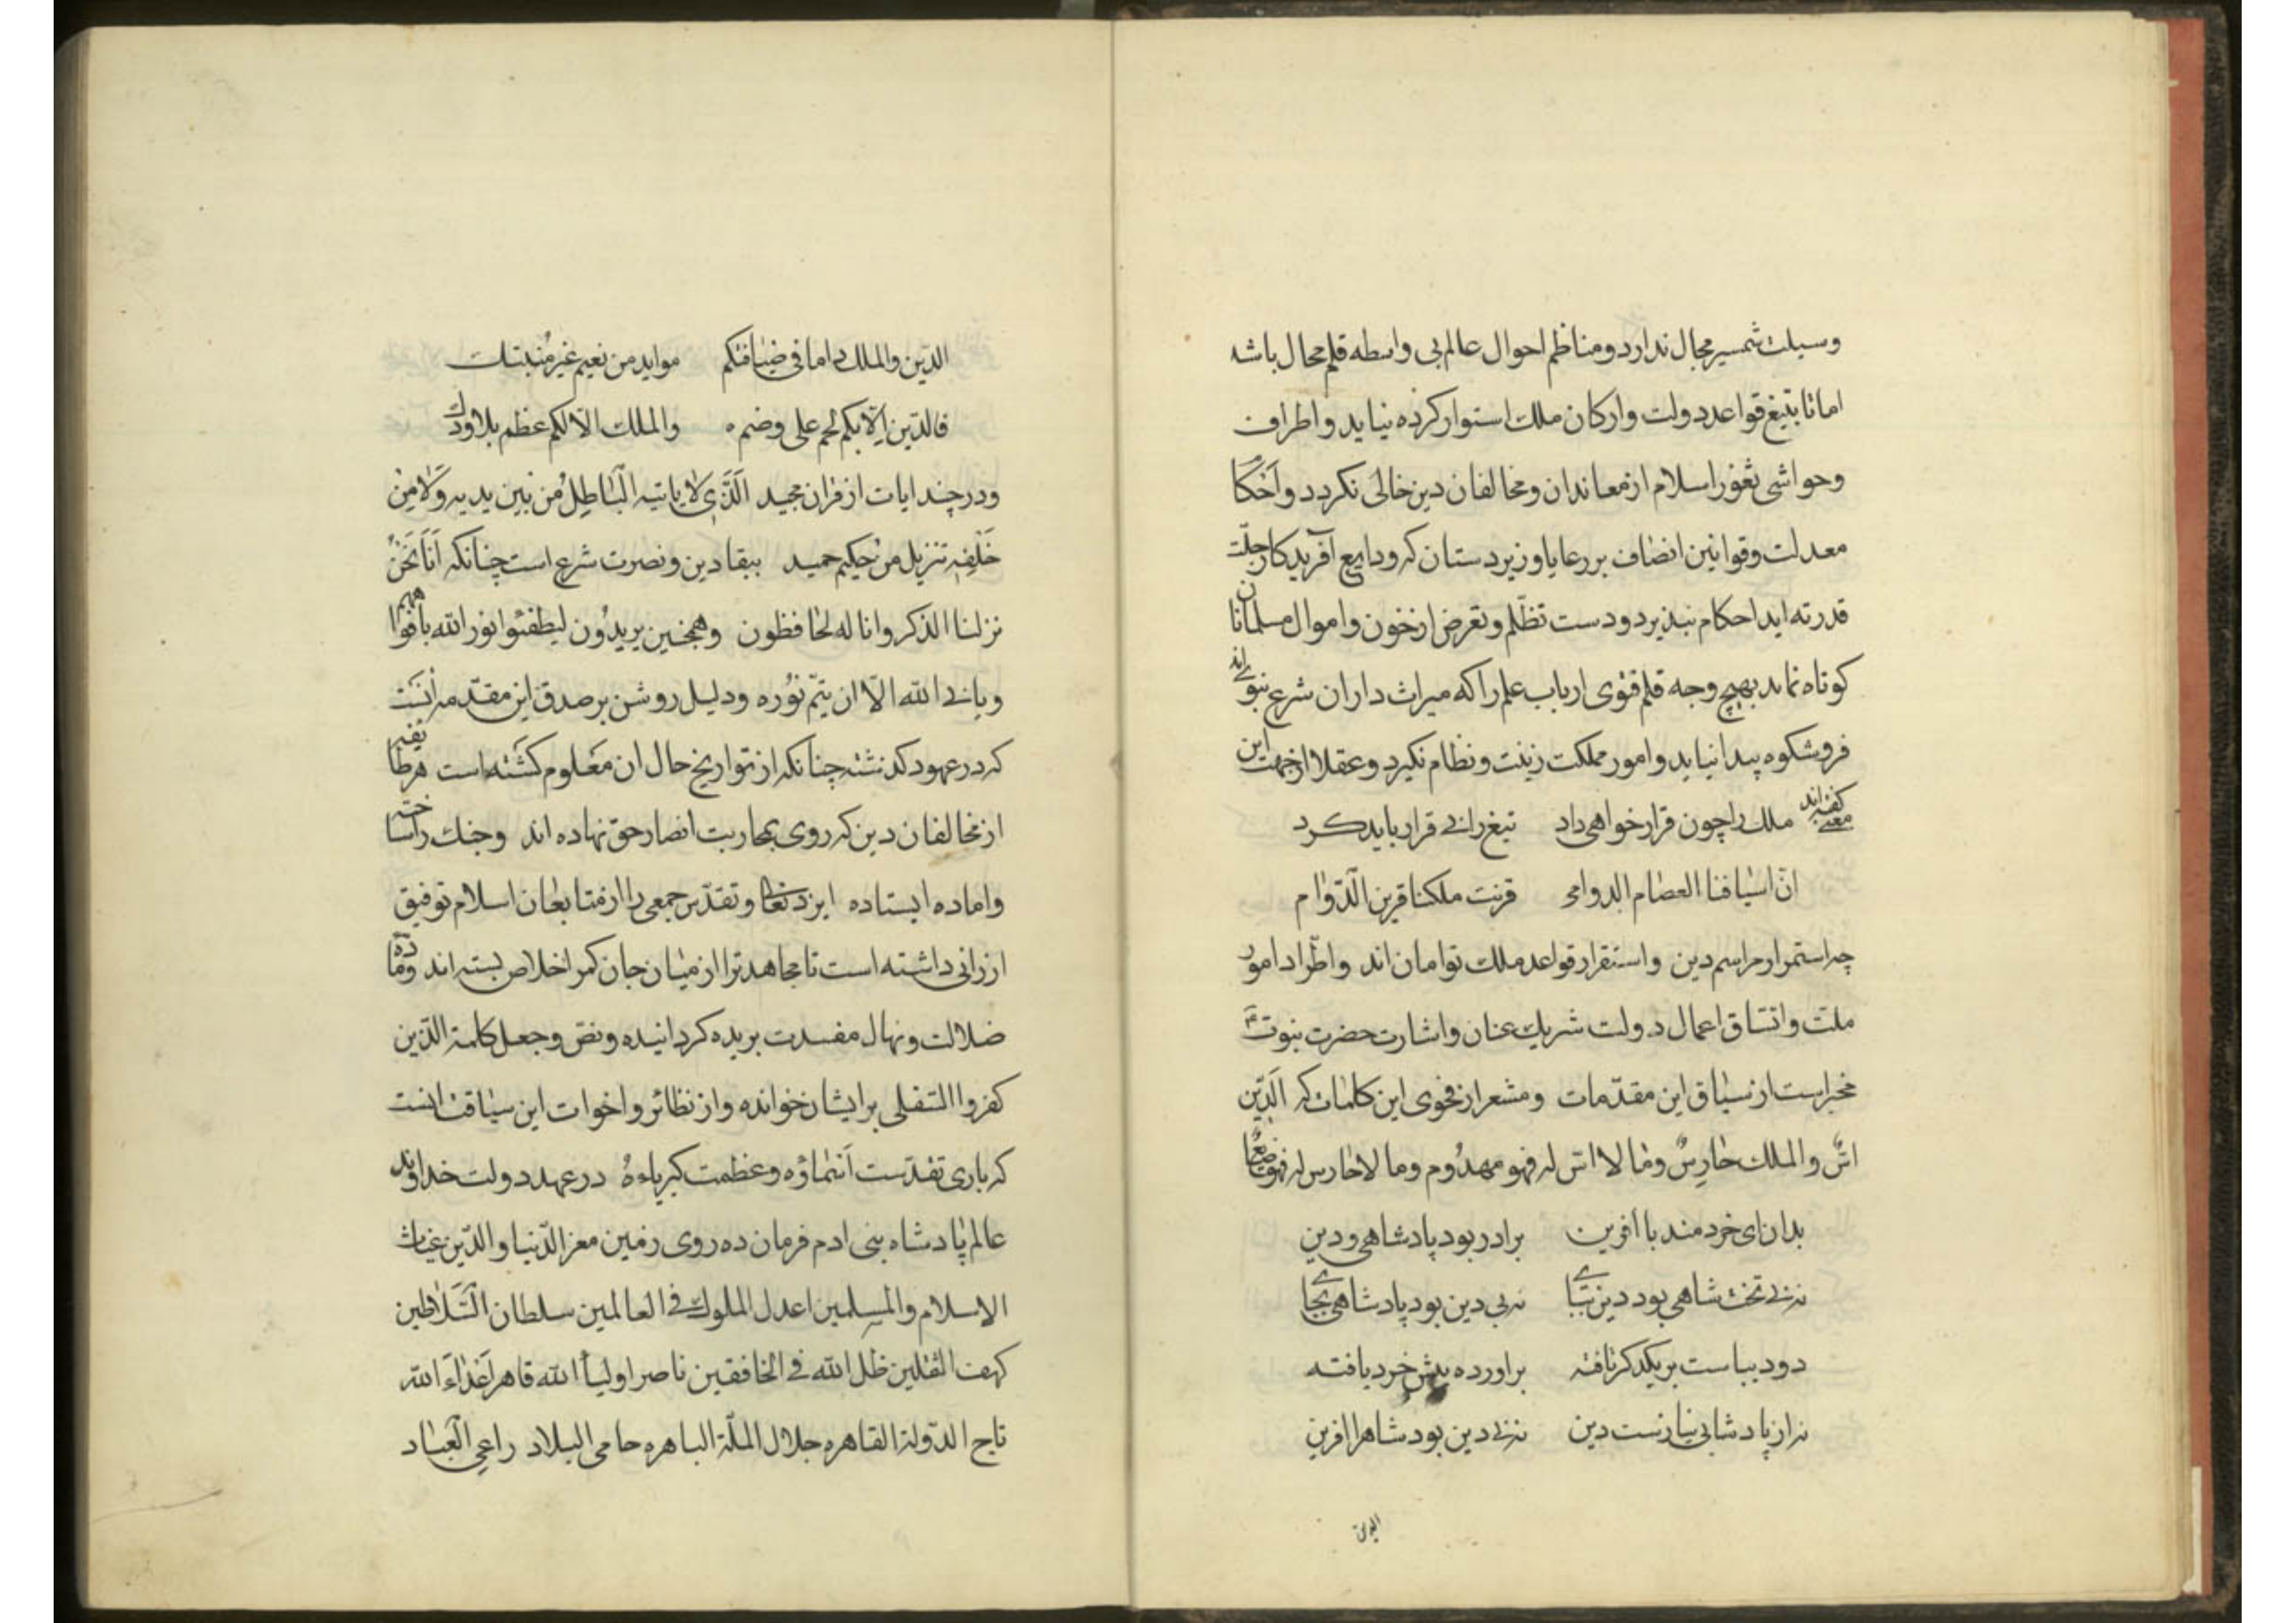 وسیلت شمسیر مجال ندارد ومناظم احوال عالم بی واسطه قلم محال باشد
اما تا بتیغ قواعد دولت وارکان ملک استوار کرده نیاید و اطراف
وحواشی ثغور اسلام از معاندان ومخالفان دین خالی نکردد و احکا
معدلت وقوانین انصاف بر رعایا و زیردستان که ودایع آفریدکار جلّت
قدرته اید احکام نپذیرد ودست تظلّم وتعرض از خون و اموال مسلمانان
کوتاه نماید بهیچ وجه قلم فتوی ارباب علم را که میراث داران شرع نبوی اند
فر وشکوه پیدا نیاید وامور مملکت زینت ونظام نکیرد وعقلا از جهت این
معنی کفته اند ملک را چون قرار خواهی داد تیغ را بی قرار باید کرد
انّ اسیافنا العضام الدوامی قرنت ملکنا قرین الدّوام
چه استمرار مراسم دین واستقرار قواعد ملک توامان اند واطّراد امور
ملت واتساق اعمال دولت شریک عنان واشارت حضرت نبوت
مخبر است از سیاق این مقدّمات ومشعر از فحوی این کلمات که الدّین
اسّ والملک حارسٌ وما لا اسّ له فهو مهدُوم وما لا حارس له فهو ضایع
بدان ای خردمند با آفرین برادر بود پادشاهی ودین
نه بی تخت شاهی بود دین بپای نه بی دین بود پادشاهی بجای
دو دیباست بر یکدکر تافته براورده پیش خرد یافته
نه از پادشا بی نیازست دین نه بی دین بود شاه را افرین
الدین
الدّین والملک داما فی ضیافتکم مواید من نعیم غیر مُنبتک
فالدّین الّا بکم لحم علی وضم والملک الّا لکم عظم بلا ودک
ودر چند ایات از قران مجید الَّذی لا یاتیه الْبَاطِلُ مُن بین یدیه وَلَا مِن
خَلْفِهِ تنزیل من حکیم حمید ببقا دین ونصرت شرع است چنانکه اَنا نَحْنُ
نزلنا الذکر وانا له لحافظون وهمچنین یریدُون لیطفئوا نور الله بافواههم
ویابی الله الّا ان یتمّ نوُره ودلیل روشن بر صدق این مقدّمه آنست
که در عهود کذشته چنانکه از تواریخ حال ان مَعلوم کشته است هر طایفه
از مخالفان دین که روی بمحاربت انصار حق نهاده اند وجنک را ساخته
واماده ایستاده ایزد تعالی وتقدّس جمعی را از متابعان اسلام توفیق
ارزانی داشته است تا مجاهدترا از میان جان کمر اخلاص بسته اند وماده
ضلالت ونهال مفسدت بریده کردانیده ونص وجعل کلمة الذین
کفروا السّفلی بر ایشان خوانده واز نظائر واخوات این سیاقت انست
که باری تقدّست اَسْمَاؤه وعظمت کبریاءهُ در عهد دولت خداوند
عالم پادشاه بنی ادم فرمان ده روی زمین معز الدّنیا والدّین غیاث
الاسلام والمسلمین اعدل الملوک فی العالمین سلطان السَّلاطین
کهف الثقلین ظل الله فی الخافقین ناصر اولیاء الله قاهر اَعْدَاء الله
تاج الدّولة القاهره جلال الملّة الباهره حامی البلاد راعی العباد